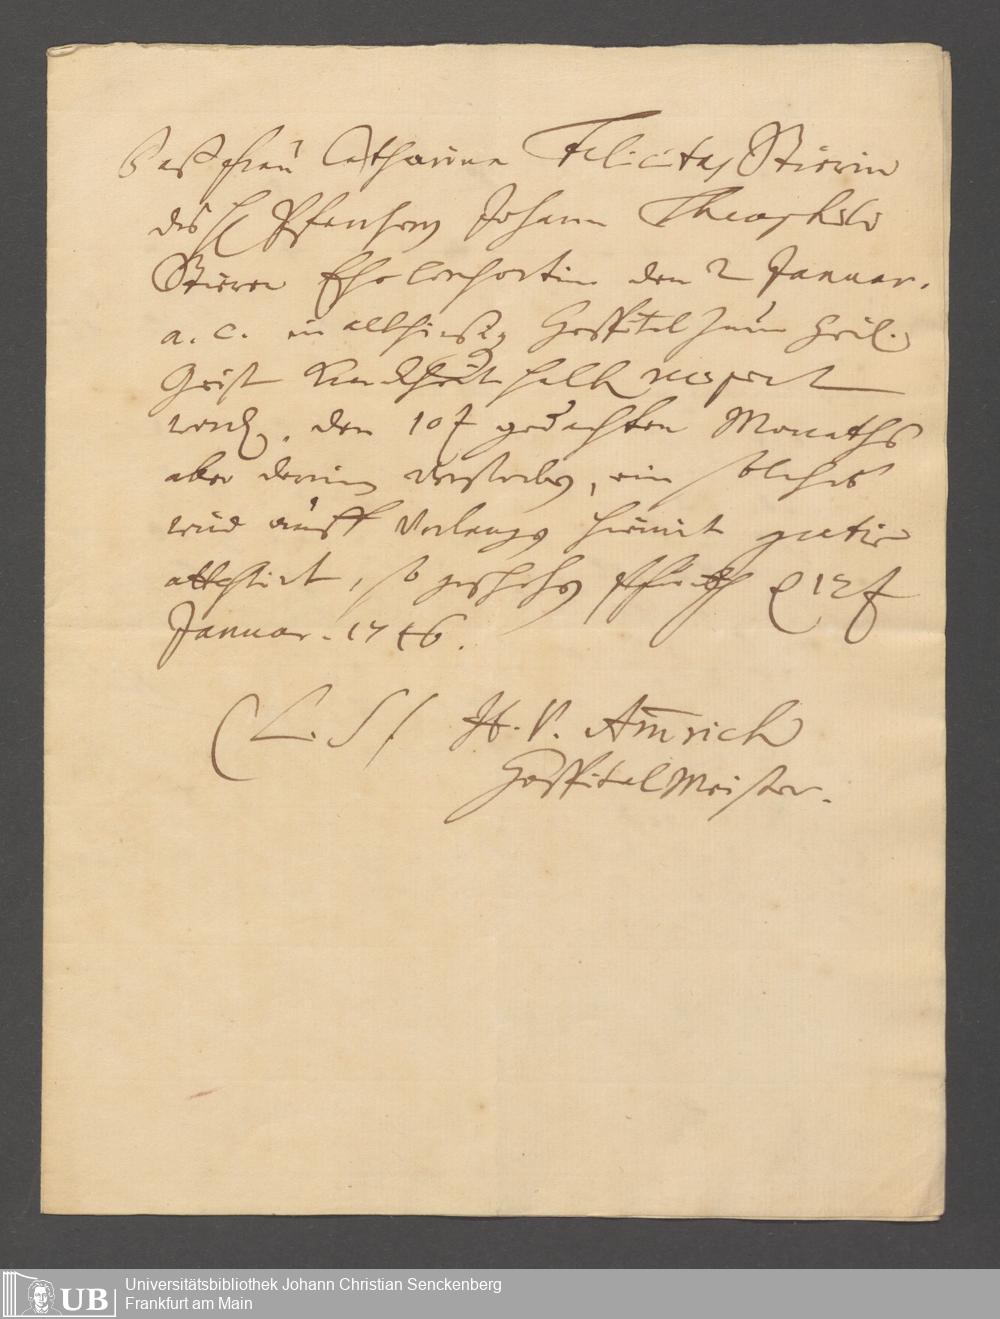 Daß Frau Catharina Felicitas Stierin
des H. Pfenherrn Johann Theophili
Stieren Ehe Consortin den 2 Januar.
a. c. in allhiesig. Hospital zum Heil.
Geist Kranckheit halb
word., den 10t gedachten Monaths
aber darin verstorben, ein solches
wird auff Verlangen hiermit gratis
attestirt, so geschehen Ffurth d 12t
Januar. 1746.
(L. S) H. V. Am̄rich
Hospital Meister.
UB
Universitätsbibliothek Johann Christian Senckenberg
Frankfurt am Main